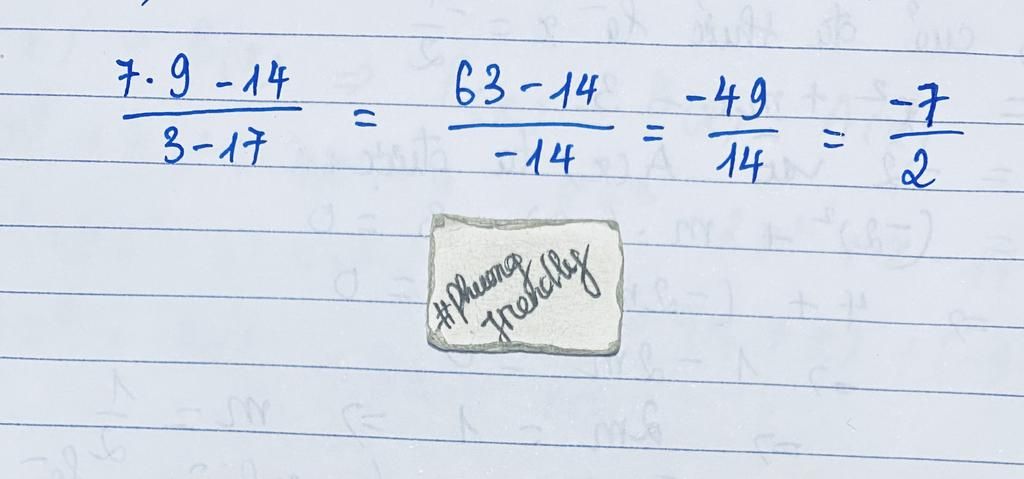 7. 9 - 14 / 3 - 17 = 63 - 14 / -14 = -49 / 14 = -7 / 2
#Phuong
friendly